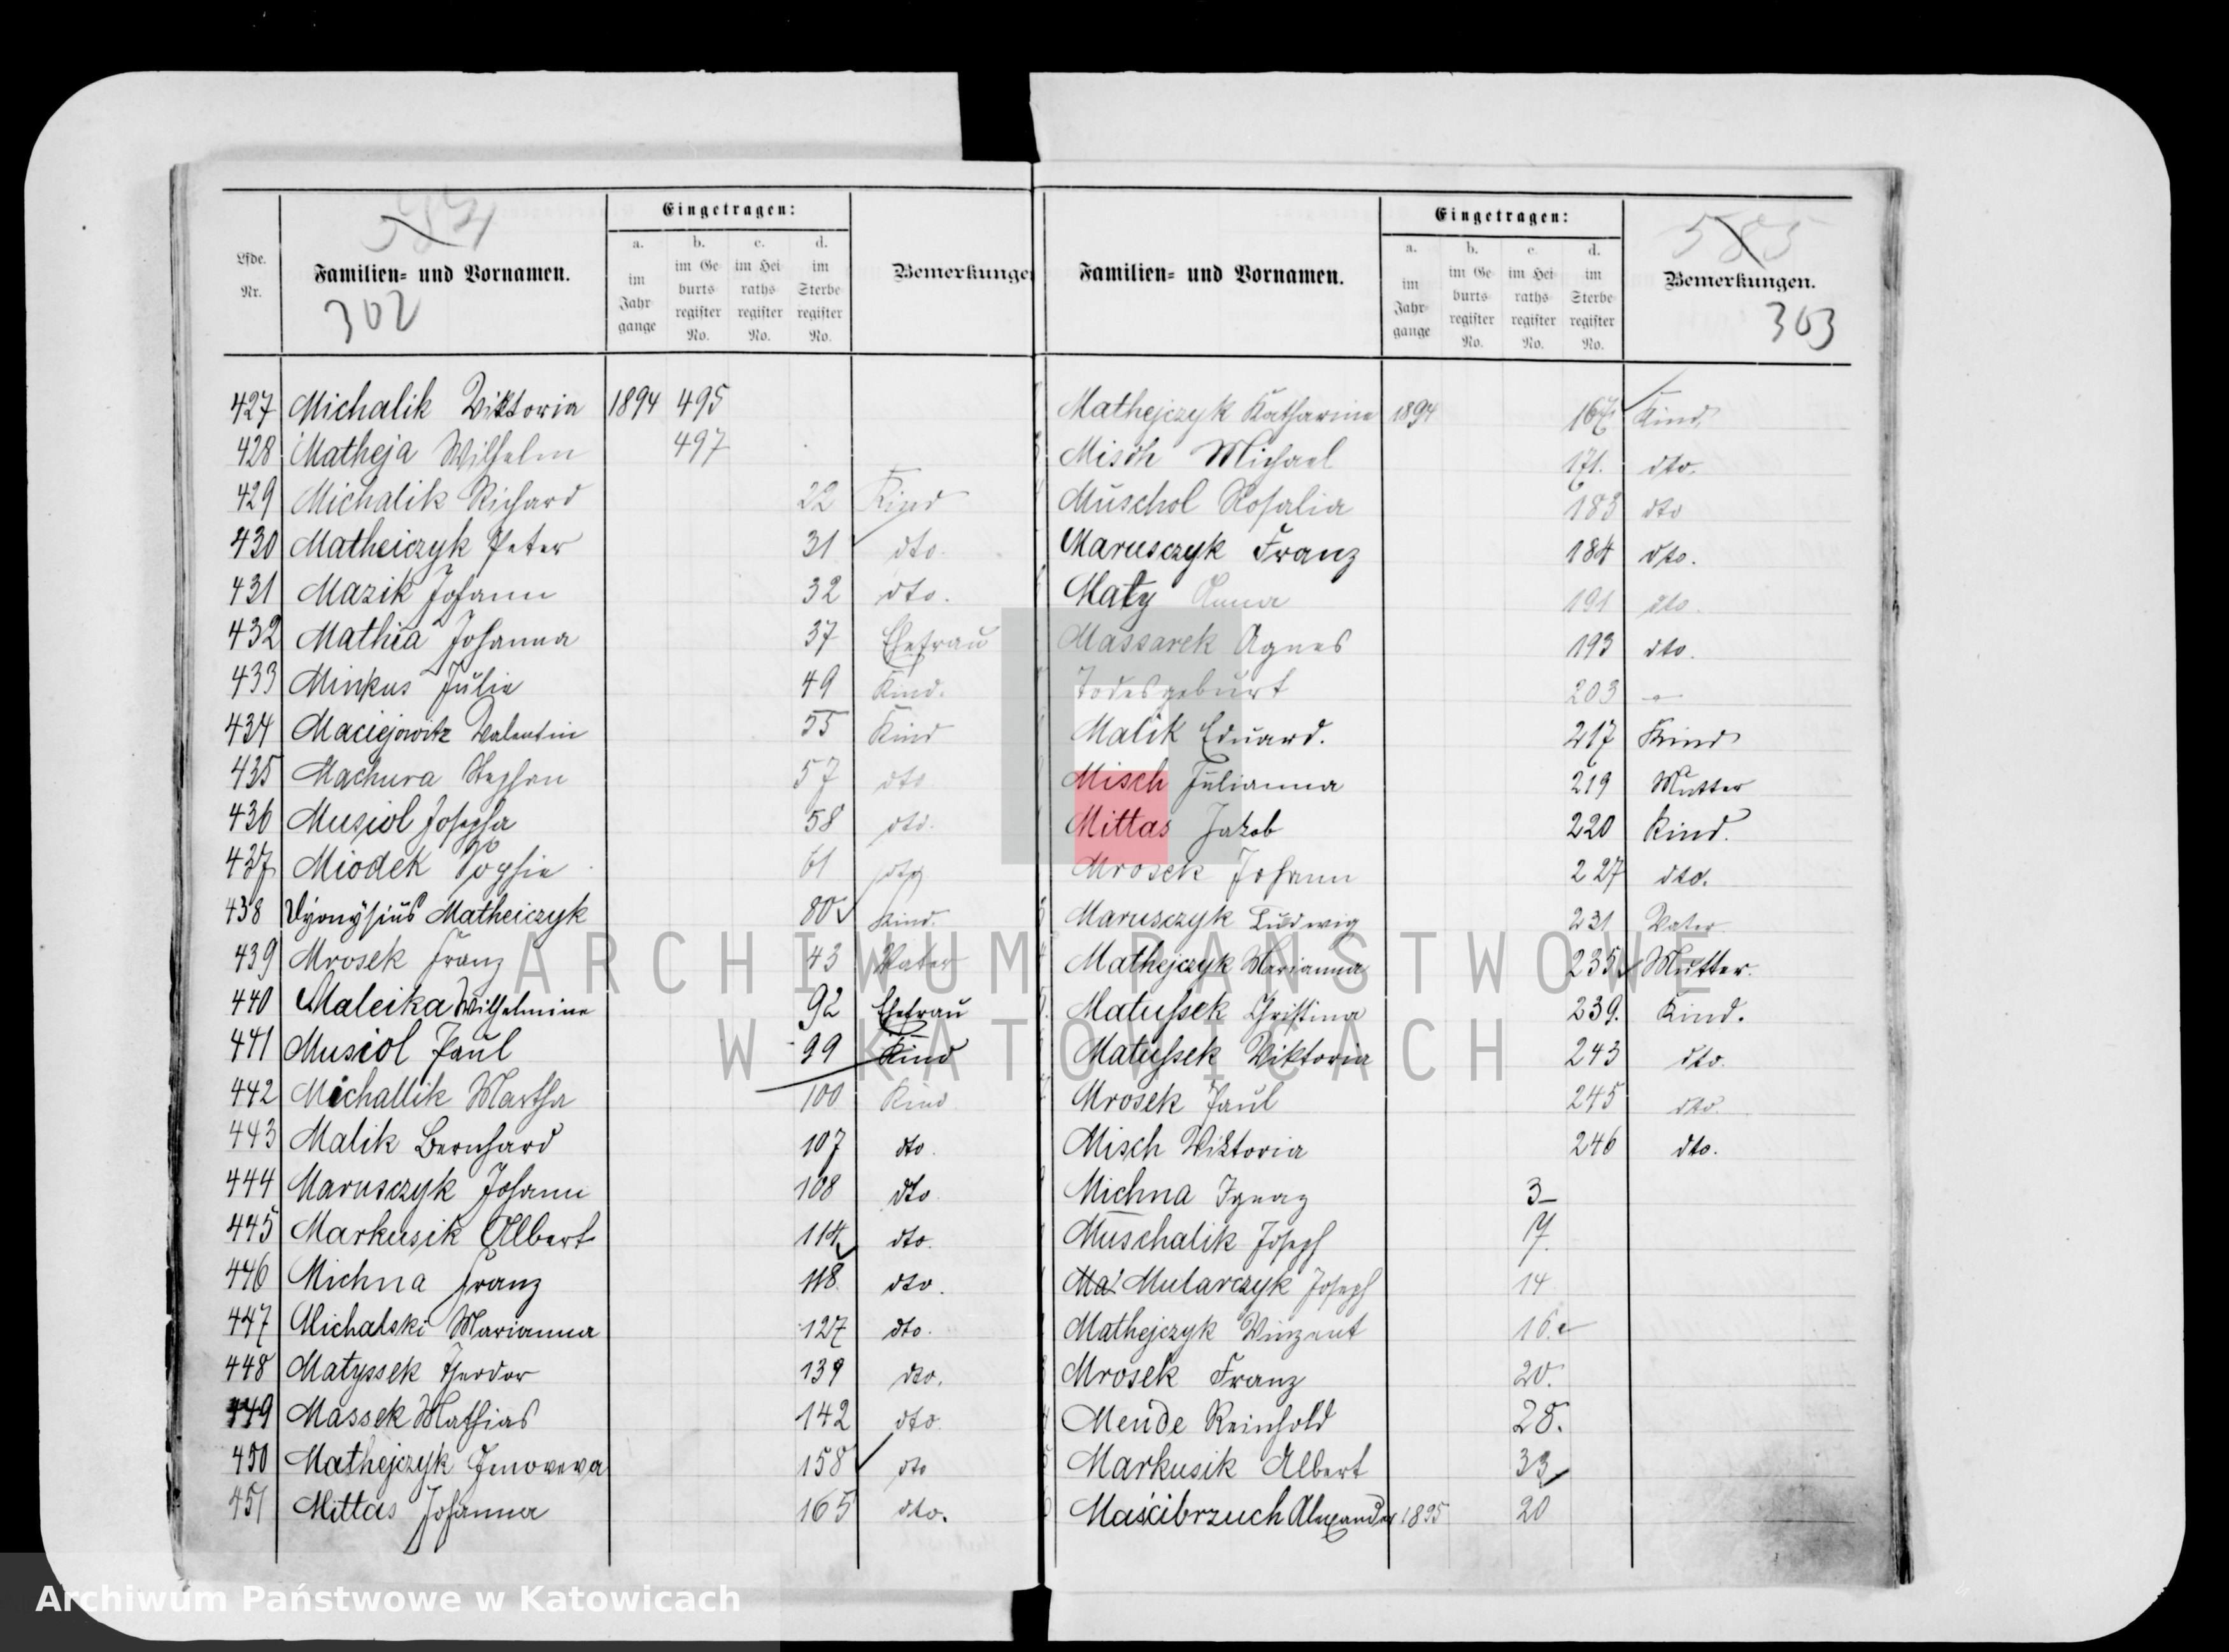 584
302
Lfde. Nr.
Familien- und Vornamen.
Eingetragen:
a. im Jahrgange
b. im Geburtsregister No.
c. im Heirathsregister No.
d. im Sterberegister No.
Bemerkunge
427 Michalik Viktoria 1894 495
428 Matheja Wilhelm 497
429 Michalik Richard 22 Kind
430 Matheiczyk Peter 31 dto.
431 Mazik Johann 32 dto.
432 Mathea Johanna 37 Ehefrau
433 Minkus Julie 49 Kind.
434 Maciejowitz Valentin 55 Kind
435 Machura Stephan 57 dto
436 Musiol Josepha 58 dto.
437 Miodek Sophie 61 dto
438 Dyonysius Matheiczyk 80 Kind.
439 Mrosek Franz 43 Vater
440 Maleika Wilhelmine 92 Ehefrau
441 Musiol Paul 99 Kind
442 Michallik Martha 100 Kind
443 Malik Bernhard 107 dto.
444 Marusczyk Johann 108 dto.
445 Markusik Albert 114 dto.
446 Michna Franz 118 dto.
447 Michalski Marianna 127 dto.
448 Matyssek Theodor 139 dto.
449 Massek Mathias 142 dto.
450 Mathejczyk Genoveva 158 dto
451 Mittas Johanna 165 dto.
585
303
Familien- und Vornamen.
Eingetragen:
a. im Jahrgange
b. im Geburtsregister No.
c. im Heirathsregister No.
d. im Sterberegister No.
Bemerkungen.
Mathejczyk Katharina 1894 167 Kind
Misch Michael 171. dto.
Muschol Rosalia 183 dto
Marusczyk Franz 184 dto.
Maty Anna 191 dto.
Massarek Agnes 193 dto.
Todesgeburt 203 -
Malik Eduard. 217 Kind
Misch Julianna 219 Mutter
Mittas Jakob 220 Kind.
Mrosek Johann 227 dto.
Marusczyk Ludwig 231 Vater
Mathejczyk Marianna 235 Mutter.
Matyssek Christina 239. Kind.
Matyssek Viktoria 243 dto.
Mrosek Paul 245 dto.
Misch Viktoria 246 dto.
Michna Ignaz 3
Muschalik Joseph 7.
Ma. Mularczyk Joseph 14
Mathejczyk Vinzent 16.
Mrosek Franz 20.
Mende Reinhold 28.
Markusik Albert 33
Maścibrzuch Alexander 1895 20
ARCHIWUM PAŃSTWOWE
W KATOWICACH
Archiwum Państwowe w Katowicach